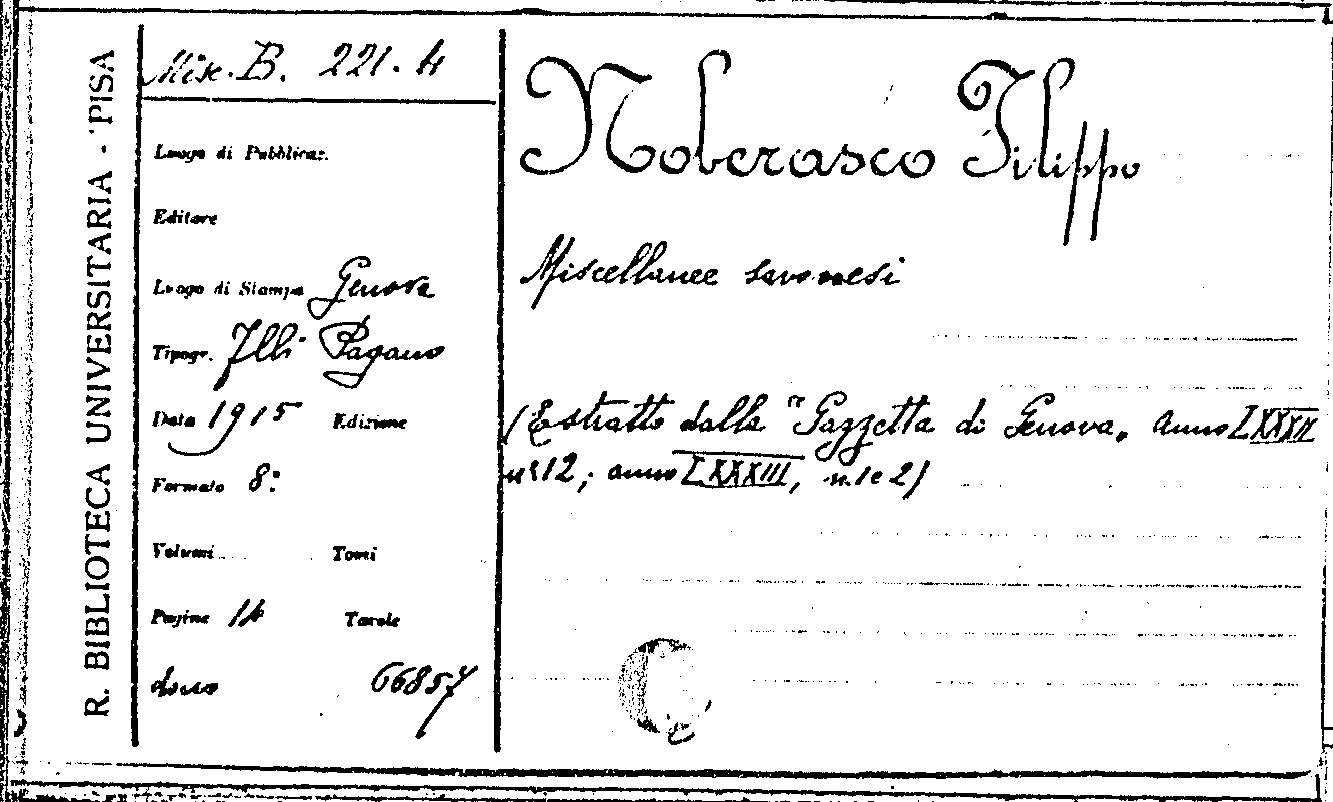 R. BIBLIOTECA UNIVERSITARIA - PISA
Misc. B. 221. 4
Luogo di Pubblicaz.
Editore
Luogo di Stampa Genova
Tipogr. Flli Pagano
Data 1915 Edizione
Formato 8º
Volumi Tomi
Pagine 14 Tavole
dono 66857
Noberasco Filippo
Miscellanee savonesi
(Estratto dalla "Gazzetta di Genova„ anno LXXXII
nº 12; anno LXXXIII, n. 1 e 2)